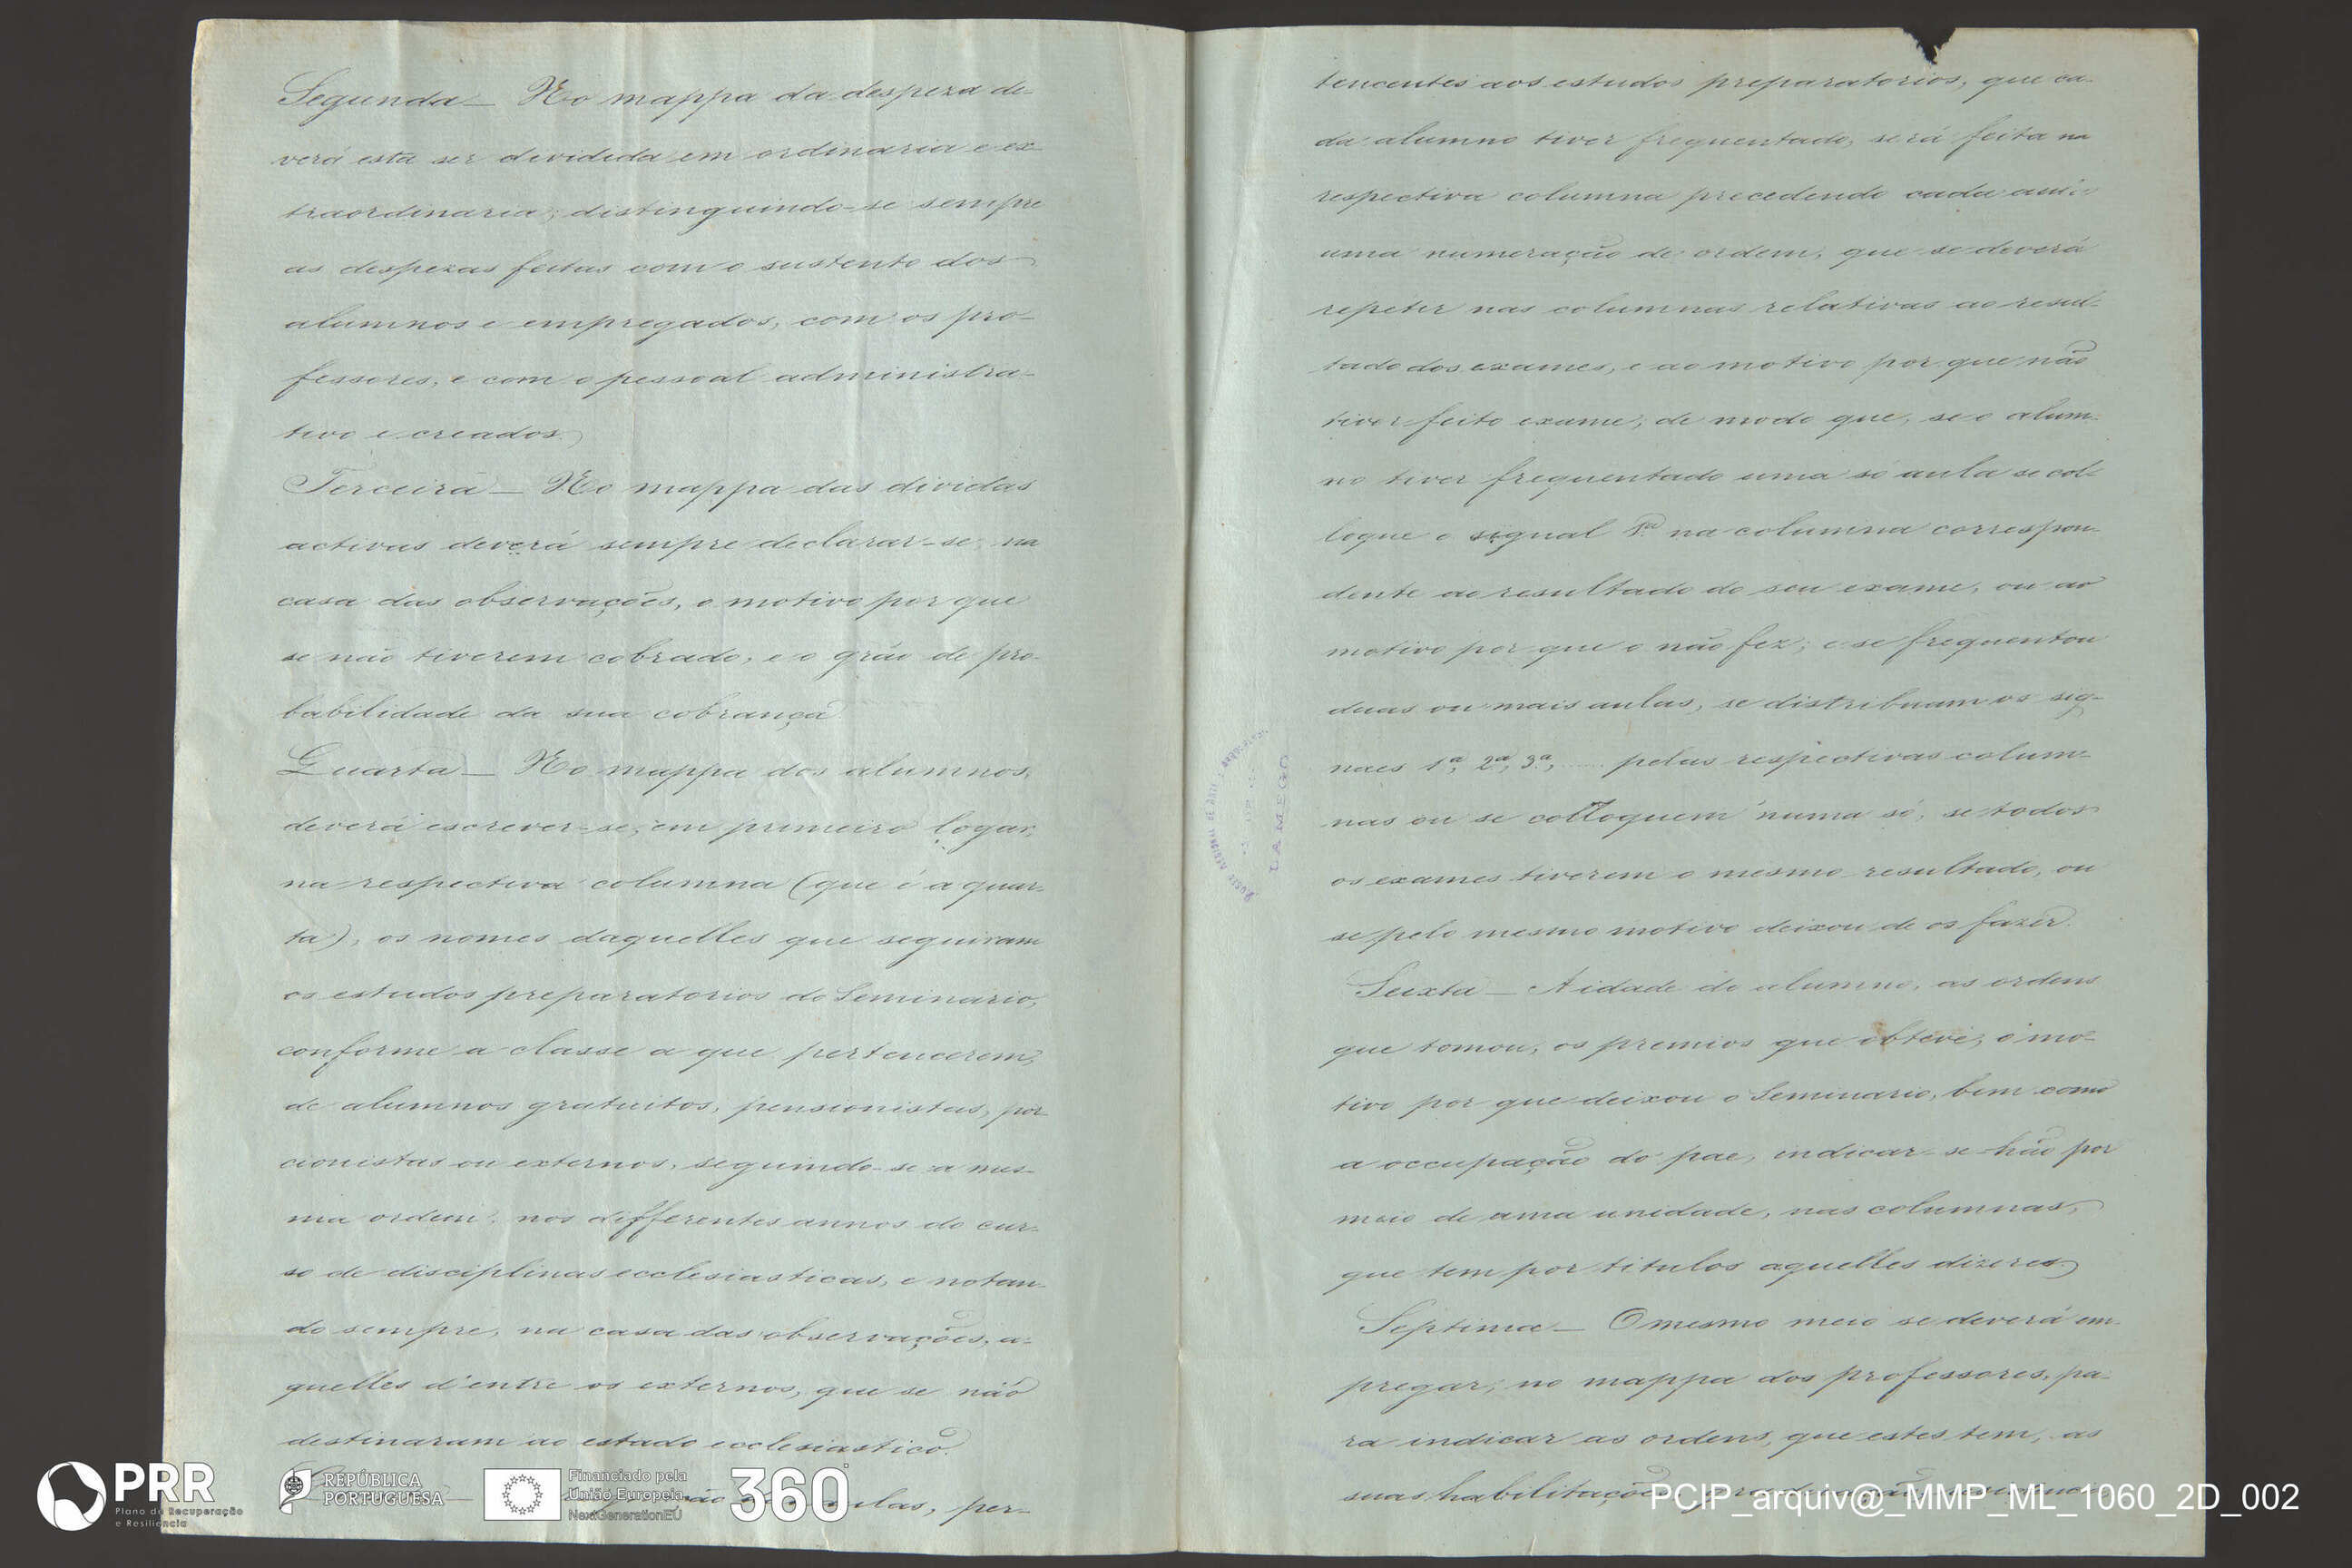 Segunda — No mappa da despeza de-
verá esta ser dividida em ordinaria e ex-
traordinaria; distinguindo-se sempre
as despezas feitas com o sustento dos
alumnos e empregados, com os pro-
fessores, e com o pessoal administra-
tivo e creados.
Terceira — No mappa das dividas
activas deverá sempre declarar-se, na
casa das observações, o motivo por que
se não tiverem cobrado, e o gráo de pro-
babilidade da sua cobrança.
Quarta — No mappa dos alumnos,
deverá escrever-se, em primeiro logar,
na respectiva columna (que é a quar-
ta), os nomes daquelles que seguiram
os estudos preparatorios do Seminario,
conforme a classe a que pertencerem,
de alumnos gratuitos, pensionistas, por-
cionistas ou externos, seguindo-se a mes-
ma ordem, nos differentes annos do cur-
so de disciplinas ecclesiasticas, e notan-
do sempre, na casa das observações, a-
quelles d'entre os externos, que se não
destinaram ao estado ecclesiastico.
aulas, per-
tencentes aos estudos preparatorios, que ca-
da alumno tiver frequentado, será feita na
respectiva columna precedendo cada aula
uma numeração de ordem, que se deverá
repetir nas columnas relativas ao resul-
tado dos exames, e ao motivo por que não
tiver feito exame; de modo que, se o alum-
no tiver frequentado uma só aula se col-
loque o signal 1.ª na columna correspon-
dente ao resultado do seu exame, ou ao
motivo por que o não fez; e se frequentou
duas ou mais aulas, se distribuam os sig-
naes 1.ª, 2.ª, 3.ª, .... pelas respectivas colum-
nas ou se colloquem numa só, se todos
os exames tiverem o mesmo resultado, ou
se pelo mesmo motivo deixou de os fazer.
Sexta — A idade do alumno, as ordens
que tomou, os premios que obteve, o mo-
tivo por que deixou o Seminario, bem como
a occupação do pae, indicar-se-hão por
meio de uma unidade, nas columnas,
que tem por titulos aquelles dizeres.
Septima — O mesmo meio se deverá em-
pregar, no mappa dos professores, pa-
ra indicar as ordens, que estes tem, as
suas habilitações,
LAMEGO
PRR
Plano de Recuperação
e Resiliência
REPÚBLICA
PORTUGUESA
Financiado pela
União Europeia
NextGenerationEU
360°
PCIP_arquiv@_MMP_ML_1060_2D_002